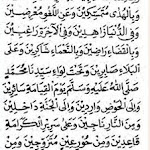 وَبِالْهُدَى مُتَمَسِّكِيْنَ وَعَنِ اللَّغْوِ مُعْرِضِيْنَ
وَفِى الدُّنْيَا زَاهِدِيْنَ وَفِى الْآخِرَةِ رَاغِبِيْنَ
وَبِالْقَضَاءِ رَاضِيْنَ وَبِالنَّعْمَاءِ شَاكِرِيْنَ وَعَلَى
الْبَلَاءِ صَابِرِيْنَ وَتَحْتَ لِوَاءِ سَيِّدِنَا مُحَمَّدٍ
صَلَّى اللهُ عَلَيْهِ وَسَلَّمَ يَوْمَ الْقِيَامَةِ سَائِرِيْنَ
وَإِلَى الْحَوْضِ وَارِدِيْنَ وَإِلَى الْجَنَّةِ دَاخِلِيْنَ
وَمِنَ النَّارِ نَاجِيْنَ وَعَلَى سَرِيْرِ الْكَرَامَةِ
قَاعِدِيْنَ وَمِنْ حُوْرٍ عِيْنٍ مُتَزَوِّجِيْنَ وَمِنْ